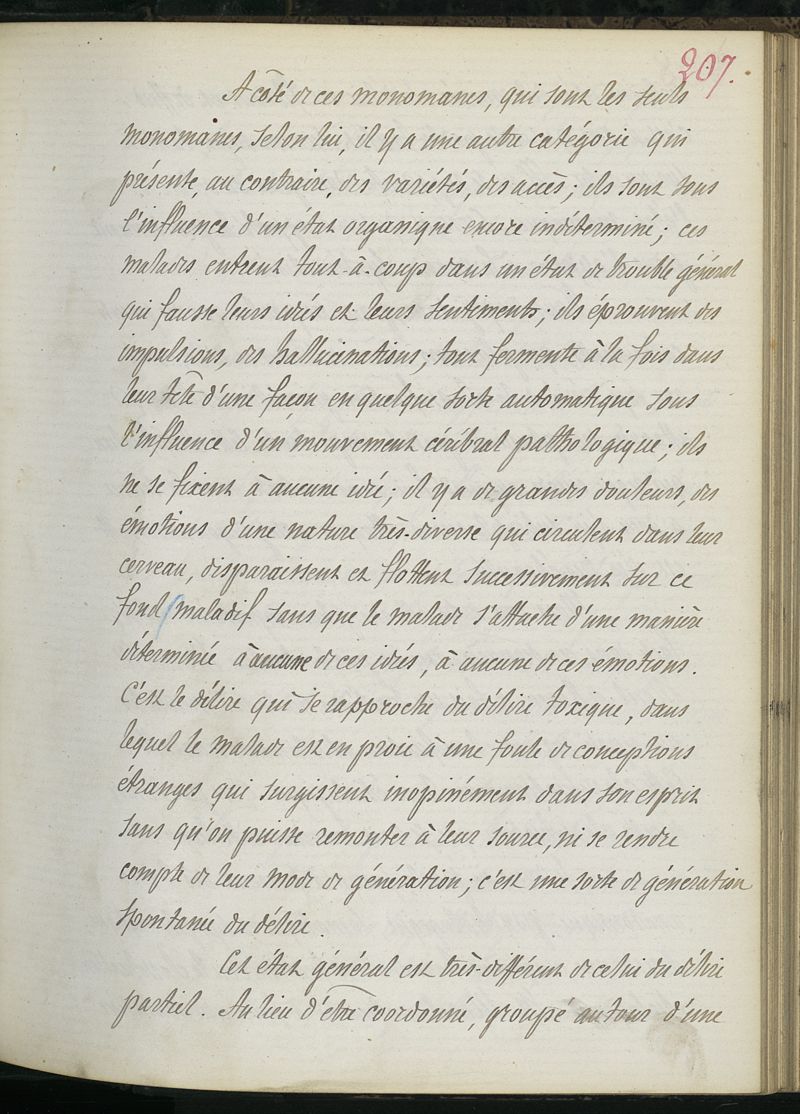 207.
A côté de ces monomanes, qui sont les seuls
monomanes, selon lui, il y a une autre catégorie qui
présente, au contraire, des variétés, des accès ; ils sont sous
l'influence d'un état organique encore indéterminé ; ces
malades entrent tout-à-coup dans un état de trouble général
qui fausse leurs idées et leurs sentiments ; ils éprouvent des
impulsions, des hallucinations ; tout fermente à la fois dans
leur tête d'une façon en quelque sorte automatique sous
l'influence d'un mouvement cérébral pathologique ; ils
ne se fixent à aucune idée ; il y a de grandes douleurs, des
émotions d'une nature très-diverse qui circulent dans leur
cerveau, disparaissent et flottent successivement sur ce
fond maladif sans que le malade s'attache d'une manière
déterminée à aucune de ces idées, à aucune de ces émotions.
C'est le délire qui se rapproche du délire toxique, dans
lequel le malade est en proie à une foule de conceptions
étranges qui surgissent inopinément dans son esprit
sans qu'on puisse remonter à leur source, ni se rendre
compte de leur mode de génération ; c'est une sorte de génération
spontanée du délire.
Cet état général est très-différent de celui du délire
partiel. Au lieu d'être coordonné, groupé autour d'une